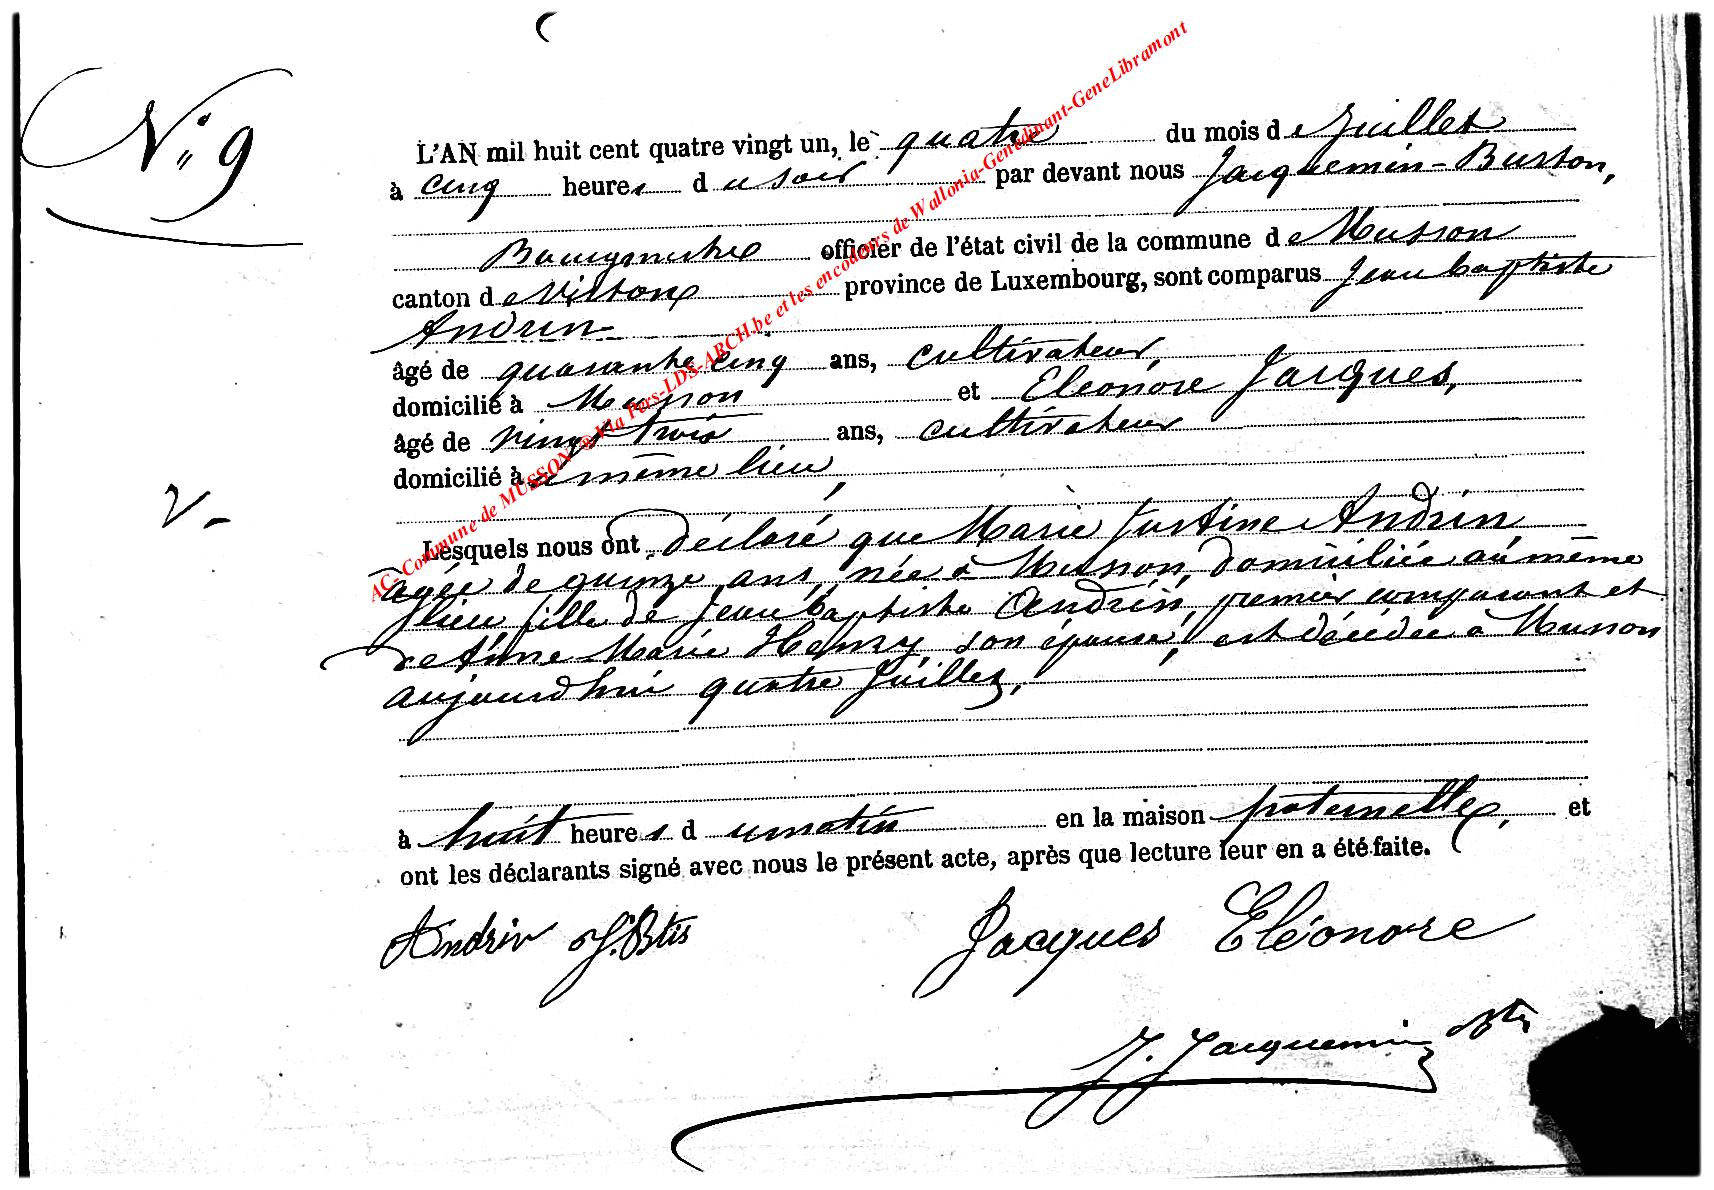 N° 9
L'AN mil huit cent quatre vingt un, le quatre du mois de Juillet
à cinq heures du soir par devant nous Jacquemin-Busson,
Bourgmestre officier de l'état civil de la commune de Musson
canton de Virton province de Luxembourg, sont comparus Jean baptiste
Andrin
âgé de quarante cinq ans, cultivateur,
domicilié à Musson et Eleonore Jacques,
âgé de vingt trois ans, cultivateur
domicilié à même lieu,
Lesquels nous ont déclaré que Marie Justine Andrin
agée de quinze ans, née à Musson, domiciliée au même
lieu fille de Jean baptiste Andrin, premier comparant et
de Anne Marie Henry son épouse, est décédée à Musson
aujourdhui quatre Juillet,
à huit heures du matin en la maison paternelle, et
ont les déclarants signé avec nous le présent acte, après que lecture leur en a été faite.
Andrin J. Btis Jacques Eléonore
J. Jacquemin
AC- Commune de MUSSON @ Via Pers-LDS-ARCH.be et les encodeurs de Wallonia-Genedinant-GeneLibramont